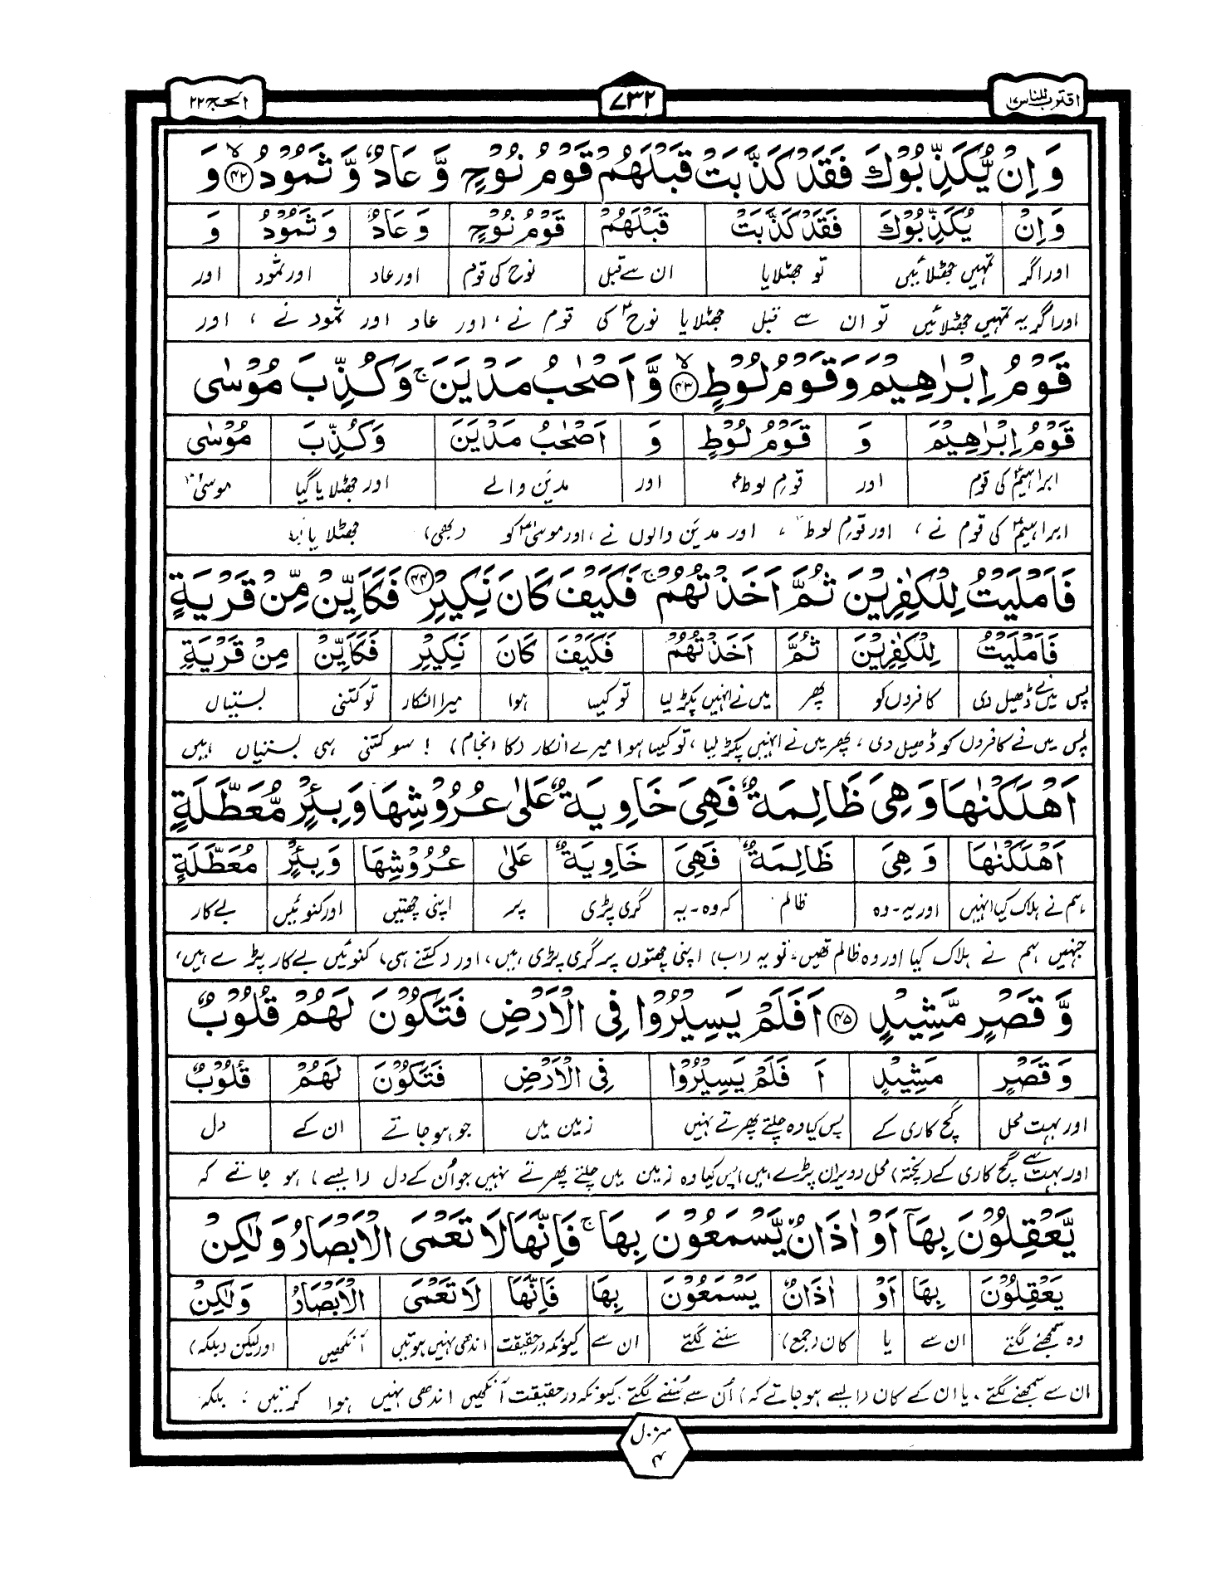 اقترب للناس ۱۷
۷۳۲
الحج ۲۲
وَ اِنْ یُّكَذِّبُوْكَ فَقَدْ كَذَّبَتْ قَبْلَهُمْ قَوْمُ نُوْحٍ وَّ عَادٌ وَّ ثَمُوْدُ ﴿۴۲﴾ وَ
وَ اِنْ یُكَذِّبُوْكَ فَقَدْ كَذَّبَتْ قَبْلَهُمْ قَوْمُ نُوْحٍ وَ عَادٌ وَ ثَمُوْدُ وَ
اور اگر تمہیں جھٹلائیں تو جھٹلایا ان سے قبل نوح کی قوم اور عاد اور ثمود اور
اور اگر یہ تمہیں جھٹلائیں تو ان سے قبل جھٹلایا نوحؑ کی قوم نے، اور عاد اور ثمود نے ، اور
قَوْمُ اِبْرٰهِیْمَ وَ قَوْمُ لُوْطٍ ﴿۴۳﴾ وَّ اَصْحٰبُ مَدْیَنَ ۚ وَ كُذِّبَ مُوْسٰی
قَوْمُ اِبْرٰهِیْمَ وَ قَوْمُ لُوْطٍ وَ اَصْحٰبُ مَدْیَنَ وَ كُذِّبَ مُوْسٰی
ابراہیمؑ کی قوم اور قومِ لوطؑ اور مدین والے اور جھٹلایا گیا موسیٰؑ
ابراہیمؑ کی قوم نے ، اور قومِ لوطؑ ، اور مدین والوں نے ، اور موسیٰؑ کو (بھی) جھٹلایا گیا
فَاَمْلَیْتُ لِلْكٰفِرِیْنَ ثُمَّ اَخَذْتُهُمْ ۚ فَكَیْفَ كَانَ نَكِیْرِ ﴿۴۴﴾ فَكَاَیِّنْ مِّنْ قَرْیَةٍ
فَاَمْلَیْتُ لِلْكٰفِرِیْنَ ثُمَّ اَخَذْتُهُمْ فَكَیْفَ كَانَ نَكِیْرِ فَكَاَیِّنْ مِنْ قَرْیَةٍ
پس میں نے ڈھیل دی کافروں کو پھر میں نے انہیں پکڑ لیا تو کیسا ہوا میرا انکار تو کتنی بستیاں
پس میں نے کافروں کو ڈھیل دی ، پھر میں نے انہیں پکڑ لیا ، تو کیسا ہوا میرے انکار (کا انجام) ! سو کتنی ہی بستیاں ہیں
اَهْلَكْنٰهَا وَ هِیَ ظَالِمَةٌ فَهِیَ خَاوِیَةٌ عَلٰی عُرُوْشِهَا وَ بِئْرٍ مُّعَطَّلَةٍ
اَهْلَكْنٰهَا وَ هِیَ ظَالِمَةٌ فَهِیَ خَاوِیَةٌ عَلٰی عُرُوْشِهَا وَ بِئْرٍ مُعَطَّلَةٍ
ہم نے ہلاک کیا انہیں اور یہ - وہ ظالم کہ وہ - یہ گری پڑی پر اپنی چھتیں اور کنوئیں بے کار
جنہیں ہم نے ہلاک کیا اور وہ ظالم تھیں ۔ تو یہ (اب) اپنی چھتوں پر گری پڑی ہیں ، اور (کتنے ہی) کنوئیں بے کار پڑے ہیں ،
وَّ قَصْرٍ مَّشِیْدٍ ﴿۴۵﴾ اَفَلَمْ یَسِیْرُوْا فِی الْاَرْضِ فَتَكُوْنَ لَهُمْ قُلُوْبٌ
وَ قَصْرٍ مَشِیْدٍ اَ فَلَمْ یَسِیْرُوْا فِی الْاَرْضِ فَتَكُوْنَ لَهُمْ قُلُوْبٌ
اور بہت محل گچ کاری کے پس کیا وہ چلتے پھرتے نہیں زمین میں جو ہو جاتے ان کے دل
اور بہت سے گچ کاری کے (پختہ) محل (ویران پڑے ہیں) پس کیا وہ زمین میں چلتے پھرتے نہیں جو اُن کے دل (ایسے) ہو جاتے کہ
یَّعْقِلُوْنَ بِهَاۤ اَوْ اٰذَانٌ یَّسْمَعُوْنَ بِهَا ۚ فَاِنَّهَا لَا تَعْمَی الْاَبْصَارُ وَ لٰكِنْ
یَعْقِلُوْنَ بِهَا اَوْ اٰذَانٌ یَسْمَعُوْنَ بِهَا فَاِنَّهَا لَا تَعْمَی الْاَبْصَارُ وَ لٰكِنْ
وہ سمجھنے لگتے ان سے یا کان (جمع) سننے لگتے ان سے کیونکہ درحقیقت اندھی نہیں ہوتیں آنکھیں اور لیکن (بلکہ)
ان سے سمجھنے لگتے ، یا ان کے کان (ایسے ہو جاتے کہ) اُن سے سُننے لگتے ، کیونکہ درحقیقت آنکھیں اندھی نہیں ہوا کرتیں ؛ بلکہ
منزل
۴